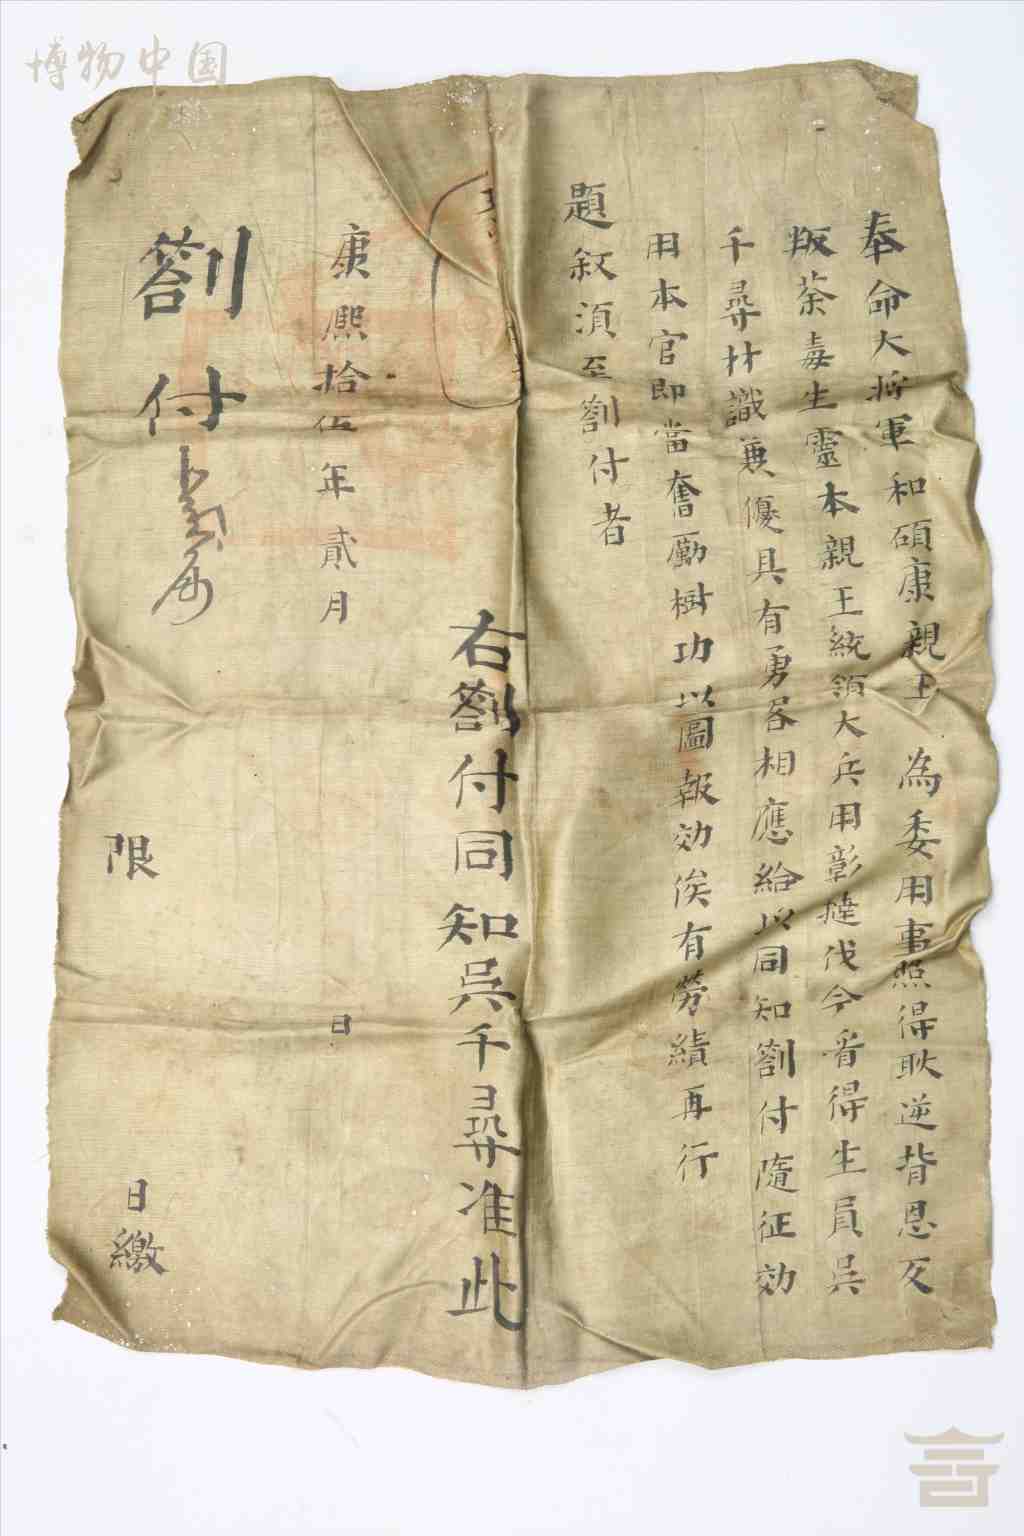 奉命大將軍和碩康親王 為委用事照得耿逆背恩反
叛荼毒生靈本親王統領大兵用彰撻伐今看得生員吳
千尋材識兼優具有勇畧相應給以同知劄付隨征効
用本官即當奮勵樹功以圖報効俟有勞績再行
題敘湏至劄付者
右劄付同知吳千尋准此
康熙拾伍年貳月 日
劄付
限 日繳
博物中国